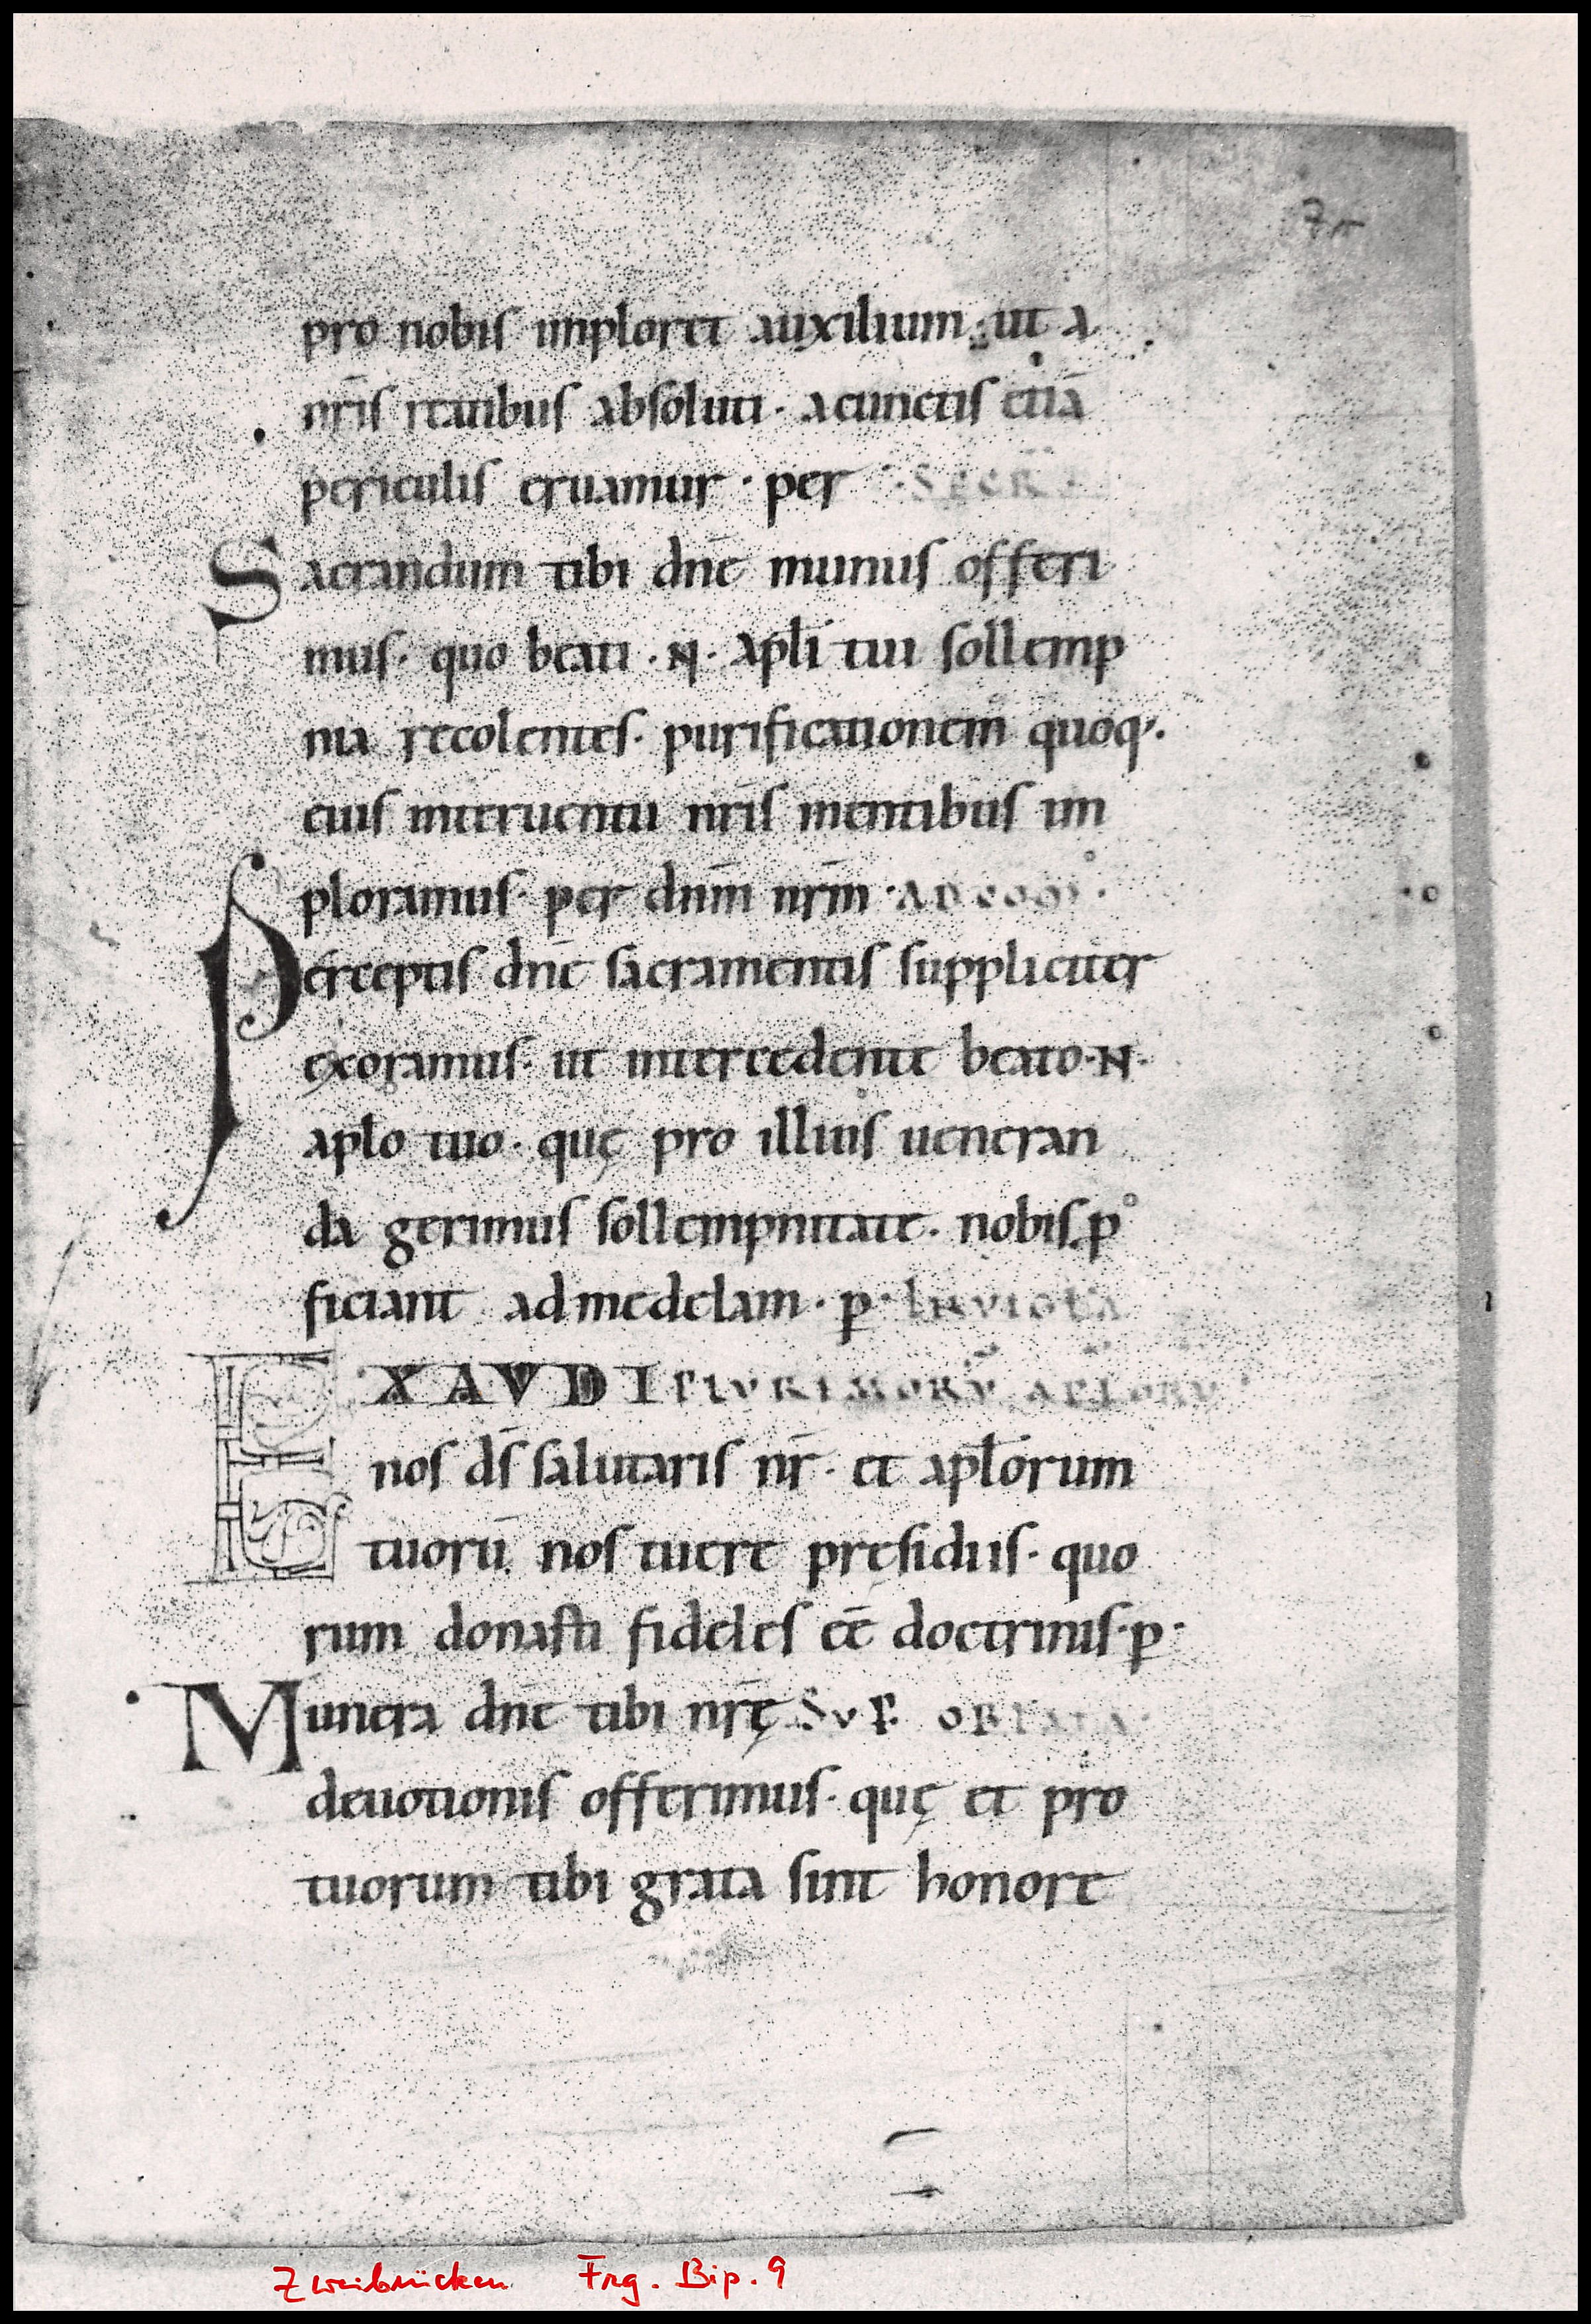 7r
pro nobis imploret auxilium· ut a
nr̄is reatibus absoluti· a cunctis etiā
periculis eruamur· per SECR̄
Sacrandum tibi dn̄e munus offeri
mus· quo beati ·N· ap̄li tui sollemp
nia recolentes· purificationem quoq;·
eius interuentu nr̄is mentibus im
ploramus· per dn̄m nr̄m· AD COM̄·
Perceptis dn̄e sacramentis suppliciter
exoramus· ut intercedente beato·N·
ap̄lo tuo· quę pro illius ueneran
da gerimus sollempnitate· nobis p°
ficiant ad medelam· p̲·
EXAUDI PLURIMORŪ AP̄LORŪ
nos d̄s salutaris nr̄· et ap̄lorum
tuorū nos tuere presidiis· quo
rum donasti fideles eē doctrinis·p̲·
Munera dn̄e tibi nr̄ę SUP̲ OBLATA
deuotionis offerimus· quę et pro
tuorum tibi grata sint honore
Zweibrücken Frg. Bip. 9